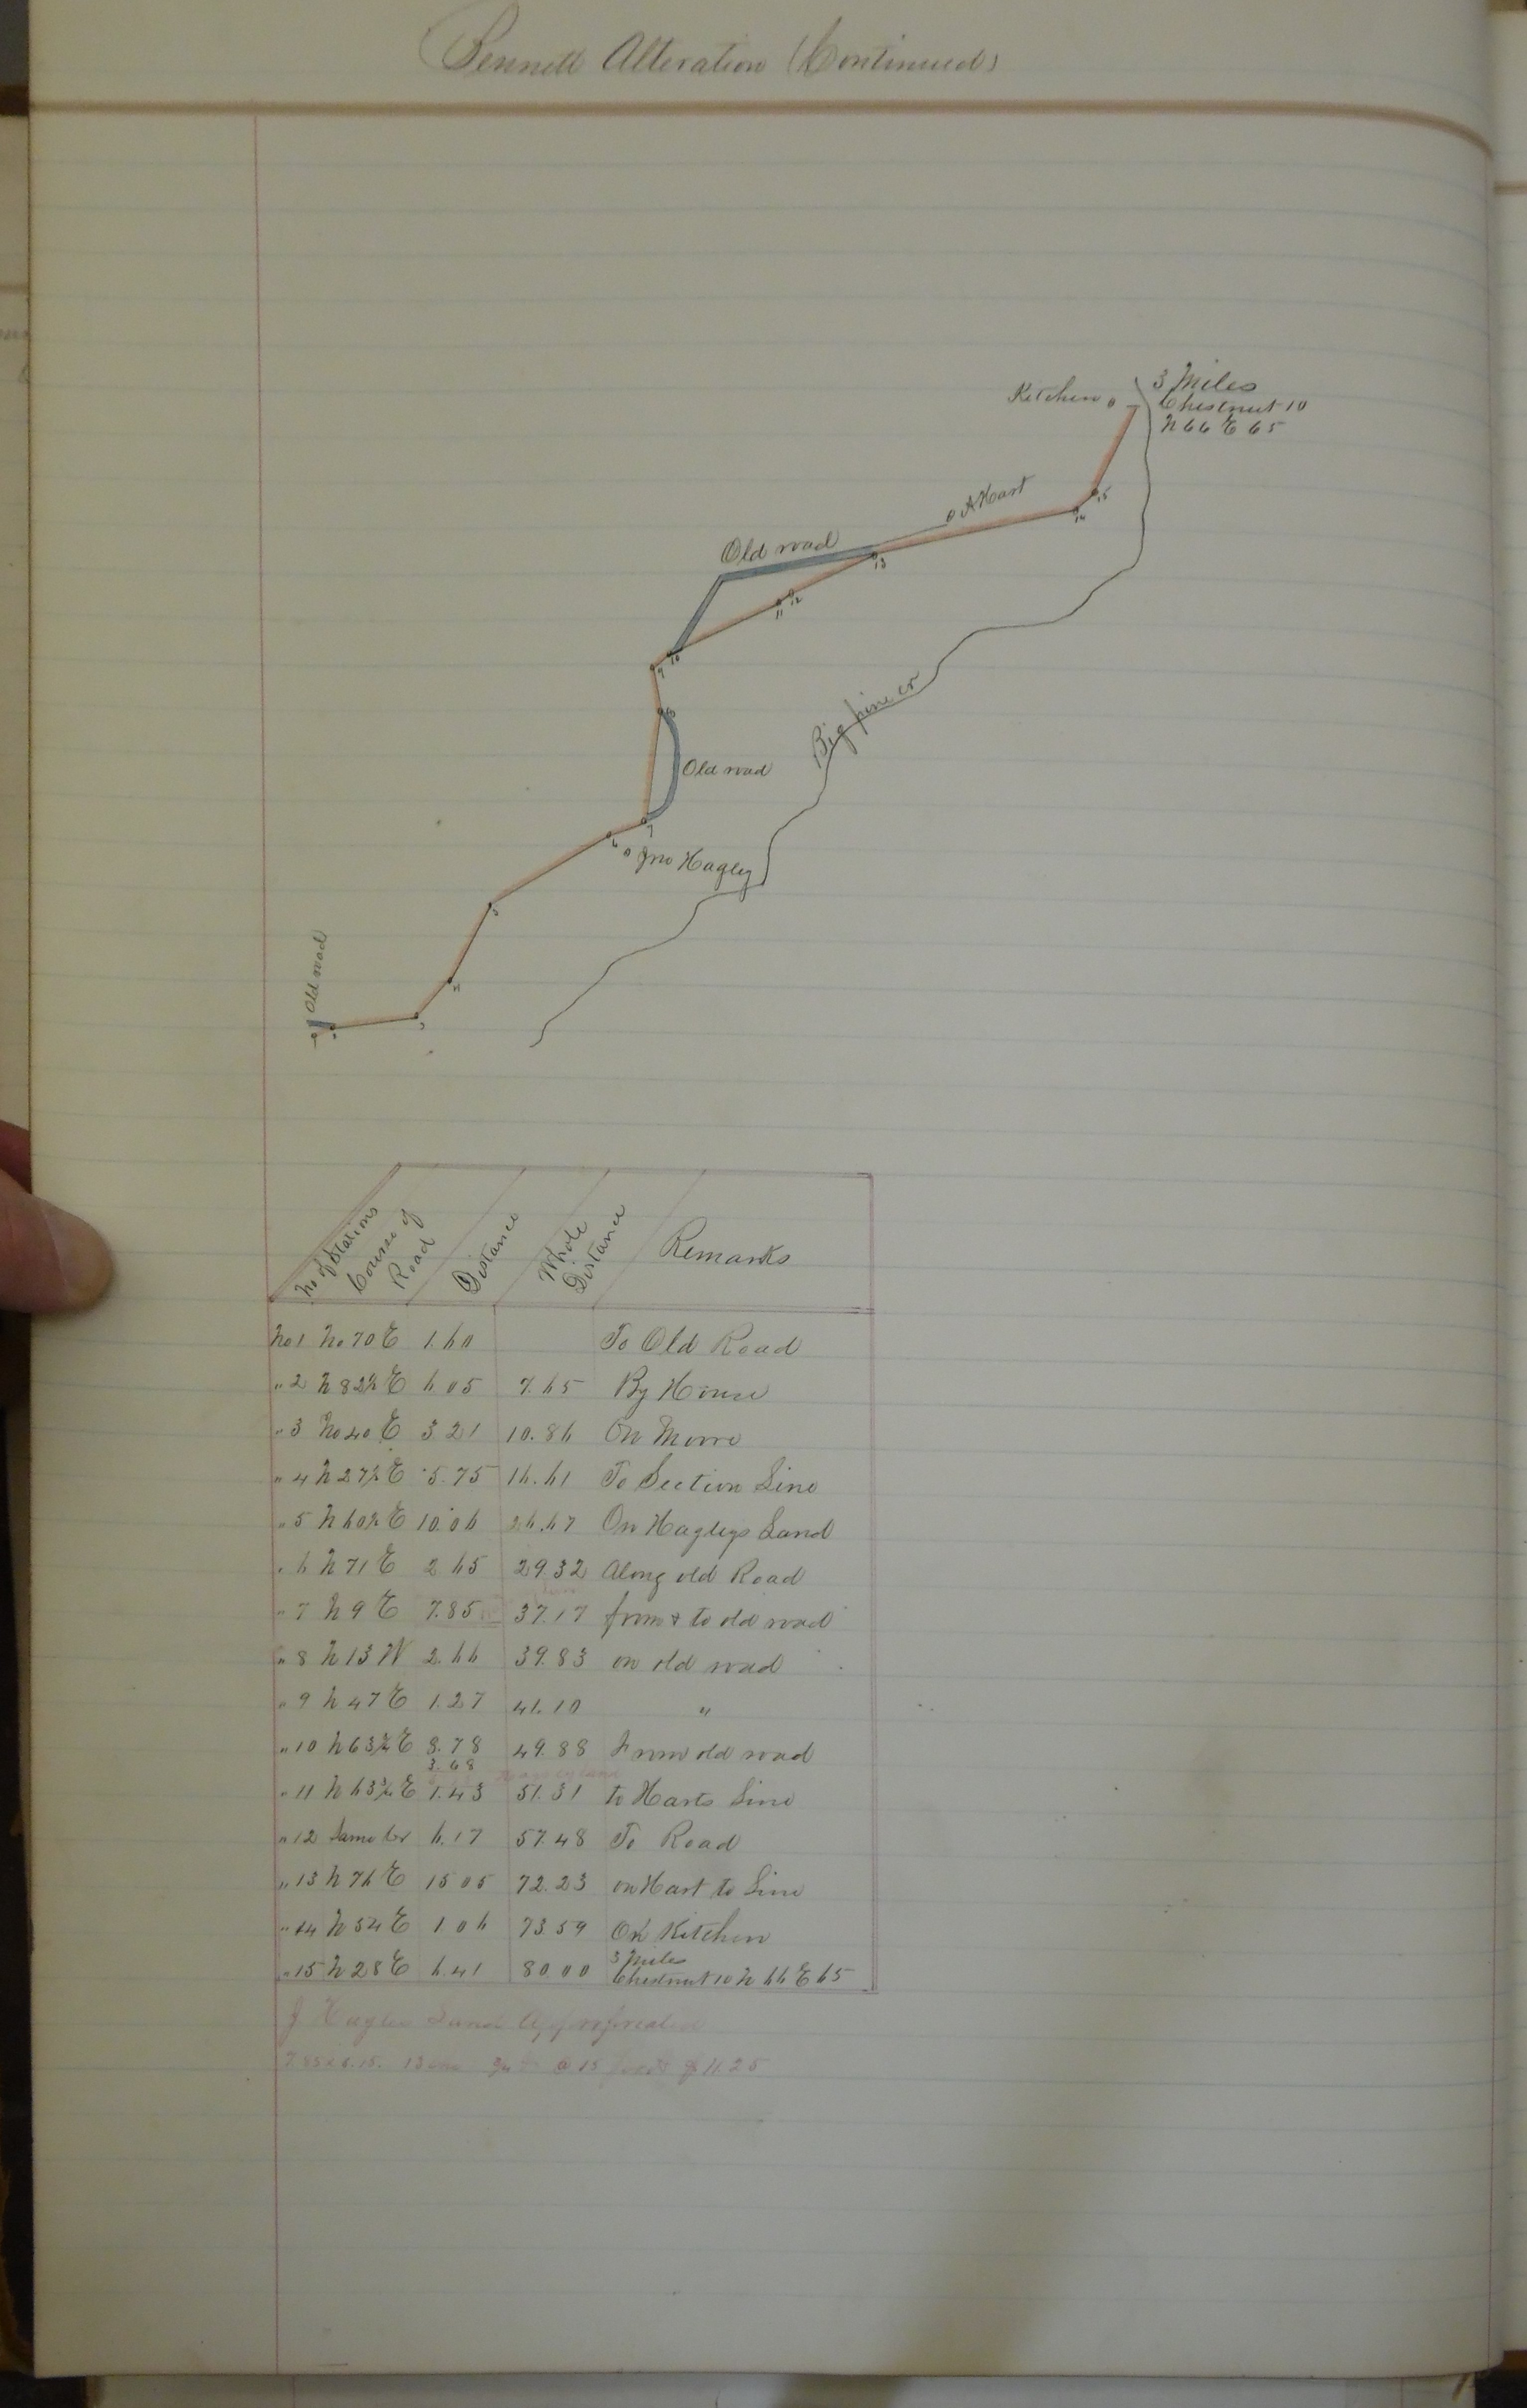 Bennett Alteration (Continued)
Kitchen
3 Miles
Chestnut 10
N 66 E 65
A Hart
15
14
Old road
13
12
11
10
9
8
Old road
Big pine cr
7
6
Jno Hagley
5
4
3
Old road
No of Stations
Course of Road
Distance
Whole Distance
Remarks
No 1 No 70 E 1.60 To Old Road
" 2 N 82½ E 6.05 7.65 By House
" 3 No 40 E 3.21 10.86 On
" 4 N 27½ E 5.75 16.61 To Section Line
" 5 N 60½ E 10.06 26.67 On Hagleys Land
" 6 N 71 E 2 65 29.32 Along old Road
" 7 N 9 E 7.85 37.17 from & to old road
" 8 N 13 W 2.66 39.83 on old road
" 9 N 47 E 1.27 41.10 "
" 10 N 63¾ E 8.78 49.88 From old road
3.68
" 11 N 63¾ E 1.43 51.31 to Harts Line
" 12 Same br 6.17 57.48 To Road
" 13 N 76 E 15 05 72.23 on Hart to Line
" 14 N 54 E 1 06 73 59 On Kitchen
" 15 N 28 E 6.41 80.00 3 Miles
Chestnut 10 N 66 E 65
J Hagles Land Appropriated
@ 15 $11.25